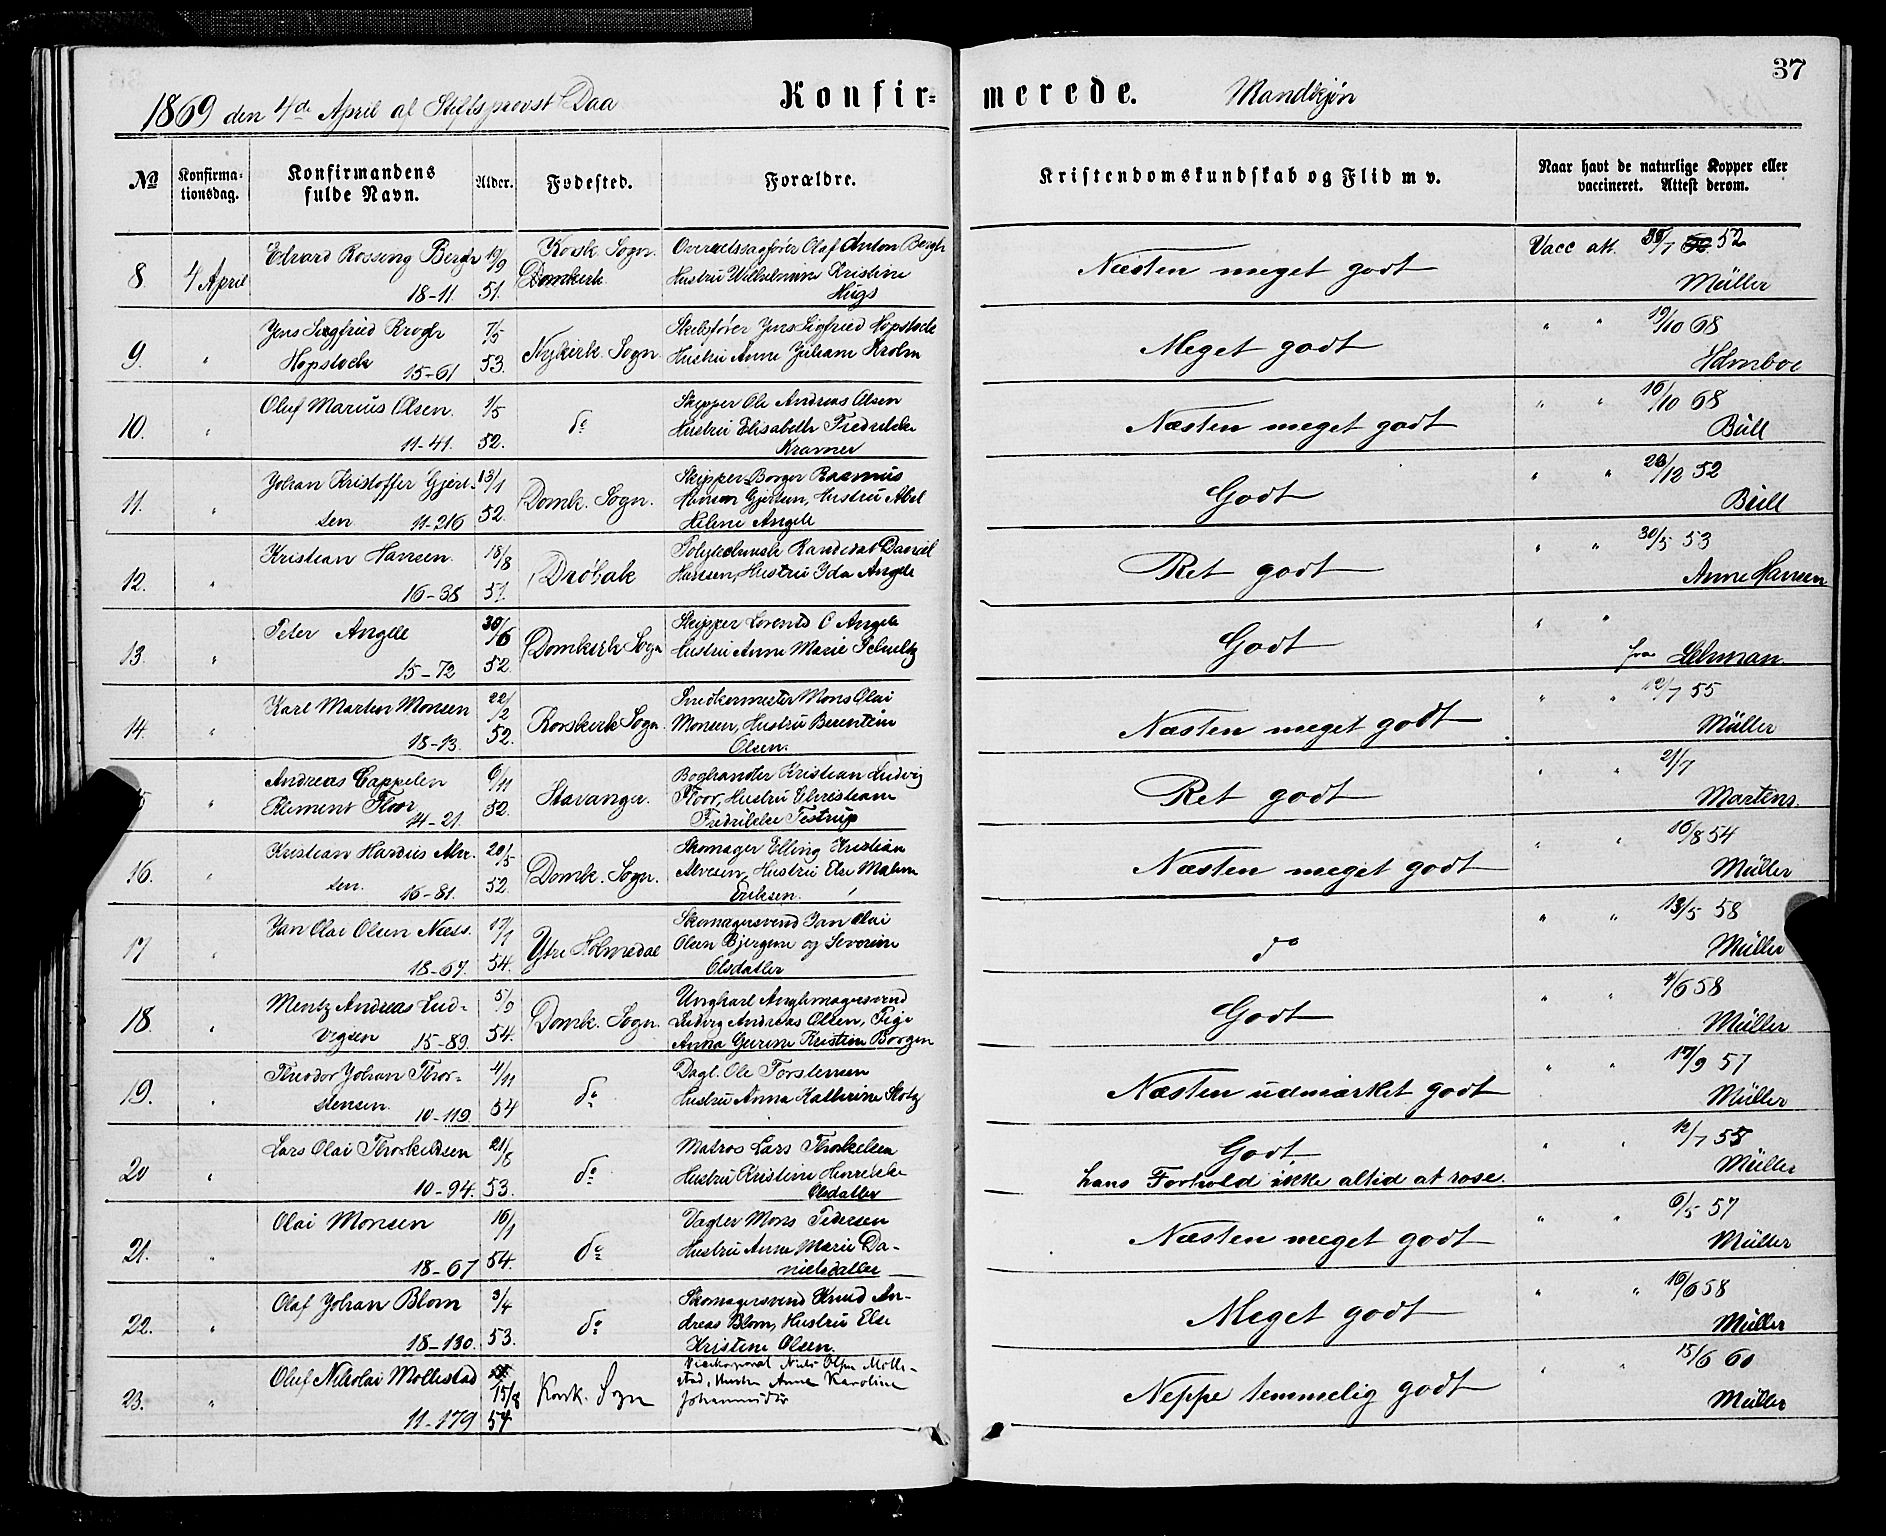 37
1869 den 4de April af Stiftsprovst Daa
Konfir=
merede. Mandkjøn
No
Konfirma-
tionsdag.
Konfirmandens
fulde Navn.
Alder.
Fødested.
Forældre.
Kristendomskundskab og Flid m v.
Naar havt de naturlige Kopper eller
vaccineret. Attest derom.
8. 4 April
18-11 51.
Korsk. Sogn.
Domkirk
Overretssagfører Olaf Anton Bergh
Hustru Wilhelmine Kristine
Næsten meget godt
Vacc att. 52
Müller
9. "
Jens Sigfried Krogh 7/5
Hopstock 15-61 53.
Nykirk. Sogn
Skibsfører Jens Sigfried Hopstock
Hustru Anne Juliane Krohn
Meget godt
" " 19/10 68
Holmboe
10. "
Oluf Marius Olsen. 1/5
11-41. 52.
do
Skipper Ole Andreas Olsen
Hustru Elisabeth Fredrikke
Kramer
Næsten meget godt
" " 16/10 68
Bull
11. "
Johan Kristoffer Gjert- 13/1
sen 11-216 52.
Domk. Sogn.
Skipper-Borger Rasmus
Hansen Gjertsen, Hustru Abel
Helene Angell
Godt
" " 28/12 52
Bull
12. "
Kristian Hansen. 18/8
16-38 51.
Drøbak
Polyteknisk Kandidat Daniel
Hansen, Hustru Ida Angell
Ret godt
" " 30/5 53
Anne Hansen
13. "
Peter Angell 30/6
15-72 52
Domkirk Sogn
Skipper Lorentz C Angell
Hustru Anne Marie Schultz
Godt
" "
fra Lehman
14. "
Karl Marten Monsen 22/2
18-13. 52.
Korskirk Sogn.
Snedkermester Mons Olai
Monsen, Hustru Berentine
Olsen.
Næsten meget godt
" " 12/7 55
Müller
5 "
Andreas Cappelen 6/11
Klement Floor 14-21. 52.
Stavanger.
Boghandler Kristian Ludvig
Floor, Hustru Christiane
Fredrikke Testrup
Ret godt
" " 21/7
Martens.
16. "
Kristian Hardus Alve- 20/5
sen. 16-81. 52.
Domk. Sogn.
Skomager Elling Kristian
Alvesen, Hustru Else Malene
Eriksen.
Næsten meget godt
" " 16/8 54
Müller
17 "
Jan Olai Olsen Næss. 17/1
18-67. 54.
Ytre Holmedal
Skomagersvend Jan Olai
Olsen Bjergene og Severine
Olsdatter
do
" " 13/5 58
Müller
18. "
Mentz Andreas Lud- 5/9
vigsen 15-89. 54.
Domk. Sogn.
Ungkarl
Ludvig Andreas Olsen, Pige
Anna Gurine Kristine Borgen
Godt
" " 4/6 58
Müller
19. "
Theodor Johan Thor- 4/11
stensen. 10-119. 54
do
Dagl. Ole Torstensen
Hustru Anna Kathrine Slotz
Næsten udmærket godt
" " 17/9 57
Müller
20 "
Lars Olai Thorkildsen 21/8
10-94. 53.
do
Matros Lars Thorkelsen
Hustru Kristine Henrikke
Olsdatter
Godt.
hans Forhold ikke altid at rose.
" " 12/7 55
Müller
21. "
Olai Monsen 16/1
18-67 54.
do
Vagter Mons Pedersen
Hustru Anne Marie Da-
nielsdatter
Næsten meget godt
" " 6/5 57
Müller
22. "
Olaf Johan Blom 3/4
18-130. 53.
do
Skomagersvend Knud An-
dreas Blom, Hustru Else
Kristine Olsen.
Meget godt
" " 16/6 58
Müller
23. "
Oluf Nikolai Mollestad 15/8
11-179 54
Kork. Sogn
Vicekorporal Niels Olsen Molle-
stad, Hustru Anne Karoline
Johannesdtr
Neppe temmelig godt
" " 15/6 60
Müller